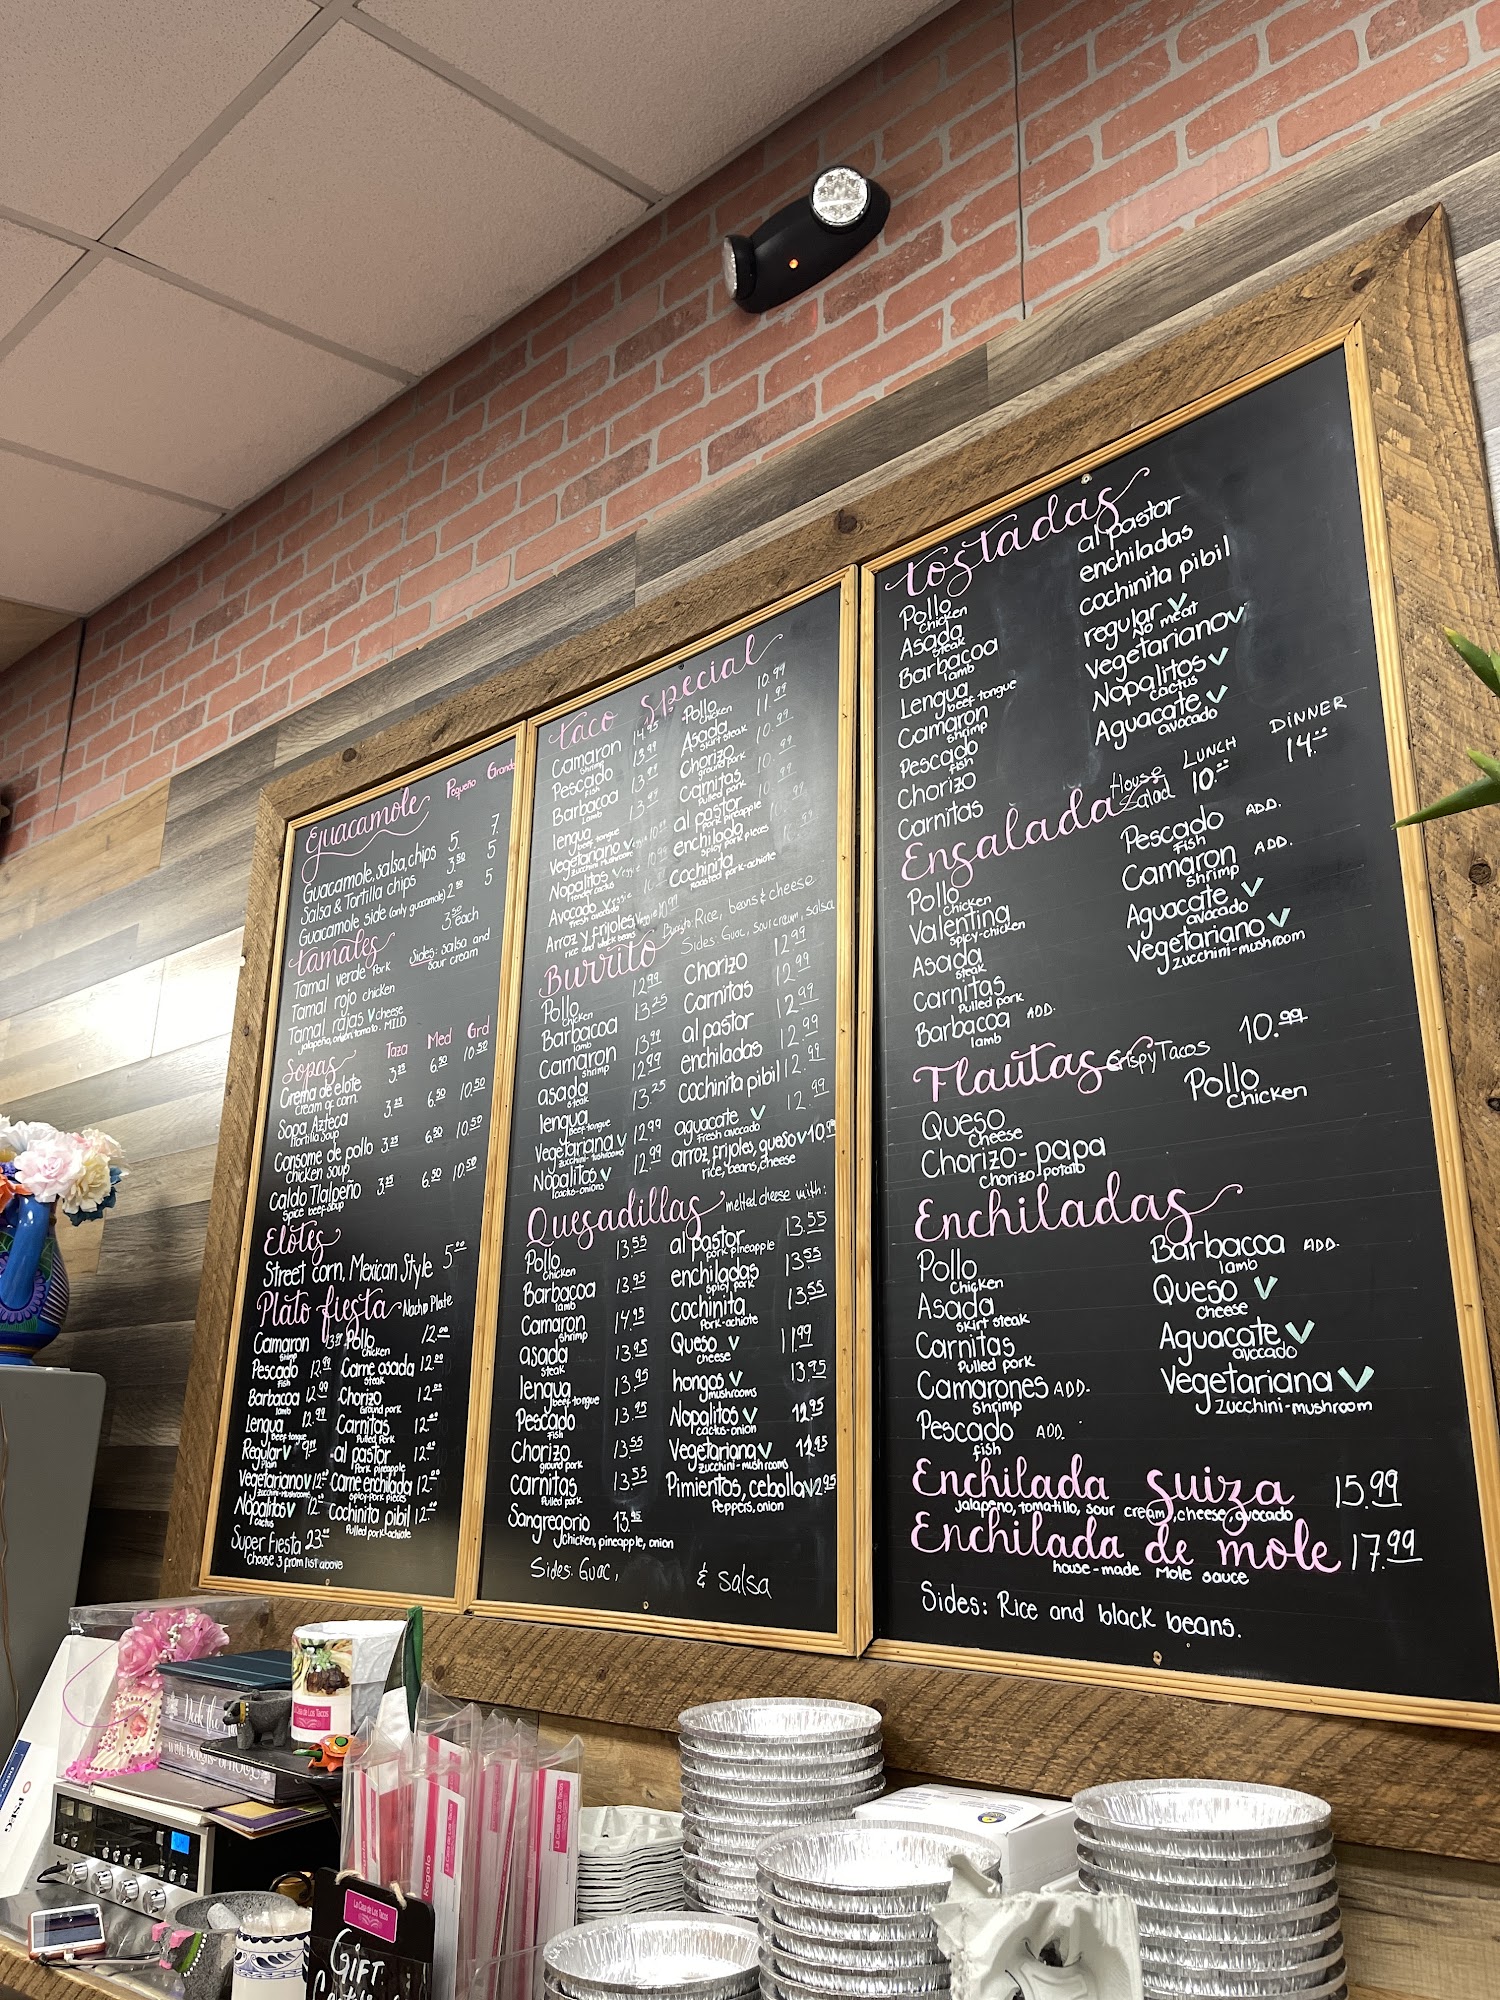 Guacamole Pequeño Grande
Guacamole, salsa, chips 5. 7.
Salsa & Tortilla chips 3.50 5
Guacamole side (only guacamole) 2.50 5
tamales 3.50 each
Tamal verde Pork Sides: salsa and
sour cream
Tamal rojo chicken
Tamal rajas V cheese
jalapeño, onion, tomato. MILD
Sopas Taza Med Grd
Crema de elote 3.25 6.50 10.50
cream of corn
Sopa Azteca 3.25 6.50 10.50
Tortilla soup
Consome de pollo 3.25 6.50 10.50
chicken soup
Caldo Tlalpeño 3.25 6.50 10.50
Spice beef soup
Elotes
Street corn, Mexican Style 5.00
Plato fiesta Nacho Plate
Camaron Pollo 12.00
Shrimp chicken
Pescado 12.99 Carne asada 12.00
Fish steak
Barbacoa 12.99 Chorizo 12.00
lamb Ground pork
Lengua 12.99 Carnitas 12.00
Beef tongue Pulled Pork
Regular V al pastor 12.00
Plain Pork pineapple
Vegetariano V 12.00 Carne enchilada 12.00
zucchini-mushrooms spicy-pork pieces
Nopalitos V 12.00 Cochinita pibil 12.00
cactus Pulled pork-achiote
Super Fiesta 23.00
choose 3 from list above
taco special
Camaron 14.95 Pollo 10.99
Shrimp chicken
Pescado 13.99 Asada 11.99
Fish skirt steak
Barbacoa 13.99 Chorizo 10.99
Lamb ground pork
lengua 13.49 Carnitas
beef tongue Pulled pork
Vegetariano V al pastor
zucchini mushrooms pork pineapple
Nopalitos enchilado
Tender cactus spicy pork pieces
Avocado Cochinita
Fresh avocado Roasted pork-achiote
Arroz y frijoles
rice and black beans
Burrito Burrito: Rice, beans & cheese
Sides: Guac, sour cream, salsa
Pollo 12.99 Chorizo 12.99
chicken
Barbacoa 13.25 Carnitas 12.99
lamb
Camaron 13.99 al pastor 12.99
shrimp
asada 12.99 enchiladas 12.99
steak
lengua 13.25 cochinita pibil 12.99
Beef tongue
Vegetariana V 12.99 aguacate V 12.99
zucchini-mushrooms Fresh avocado
Nopalitos V 12.99 arroz, frijoles, queso V 10.99
cactus-onions rice, beans, cheese
Quesadillas melted cheese with:
Pollo 13.55 al pastor 13.55
chicken pork pineapple
Barbacoa 13.95 enchiladas 13.55
lamb spicy pork
Camaron 14.95 cochinita 13.55
shrimp Pork-achiote
asada 13.95 Queso V 11.99
steak cheese
lengua 13.95 hongos V 13.95
beef tongue mushrooms
Pescado 13.95 Nopalitos V 12.95
Fish cactus-onion
Chorizo 13.55 Vegetariana V 12.95
ground pork zucchini-mushrooms
Carnitas 13.55 Pimientos, cebolla V
Pulled pork Peppers, onion
Sangregorio 13.95
chicken, pineapple, onion
Sides: Guac, & salsa
tostadas
Pollo al pastor
chicken
Asada enchiladas
steak
Barbacoa cochinita pibil
lamb
Lengua regular V
beef tongue No meat
Camaron Vegetariano V
shrimp
Pescado Nopalitos V
fish cactus
Chorizo Aguacate V
avocado
Carnitas
Ensalada House Salad LUNCH 10.00 DINNER 14.00
Pollo Pescado ADD.
chicken Fish
Valentina Camaron ADD.
spicy-chicken shrimp
Asada Aguacate V
steak avocado
Carnitas Vegetariano V
Pulled pork zucchini-mushroom
Barbacoa ADD.
lamb
Flautas Crispy Tacos 10.99
Queso Pollo
cheese chicken
Chorizo-papa
chorizo.potato
Enchiladas
Pollo Barbacoa ADD.
chicken lamb
Asada Queso V
skirt steak cheese
Carnitas Aguacate V
Pulled pork avocado
Camarones ADD. Vegetariana V
Shrimp zucchini-mushroom
Pescado ADD.
fish
Enchilada Suiza 15.99
jalapeño, tomatillo, sour cream, cheese, avocado
Enchilada de mole 17.99
house-made Mole sauce
Sides: Rice and black beans.
Deck the
with boughs of holly
La Casa de Los Tacos
Regalo
La Casa de Los Tacos
La Casa de Los Tacos
GIFT
PSEG